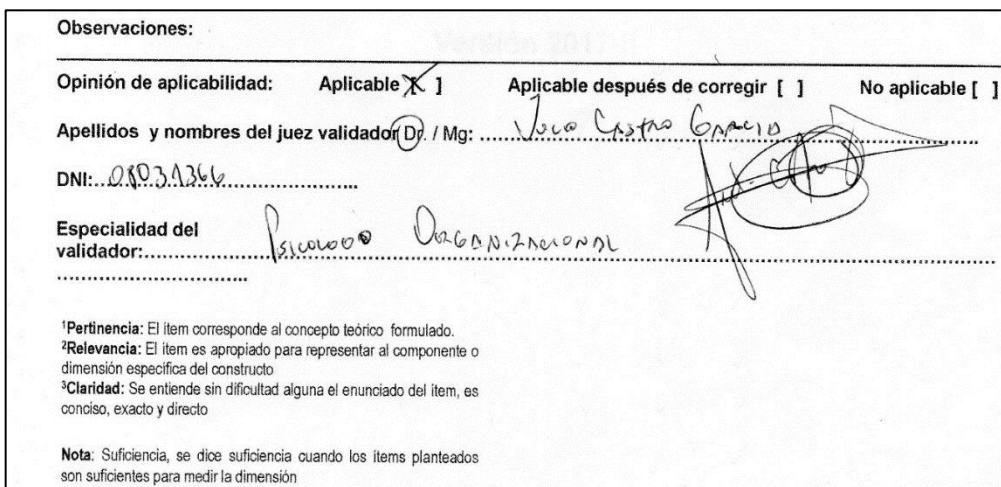 Versión 2017-II
Observaciones:
Opinión de aplicabilidad: Aplicable [X] Aplicable después de corregir [ ] No aplicable [ ]
Apellidos y nombres del juez validador Dr. / Mg: Castro Garcia
DNI: 08031366
Especialidad del
validador: Psicologo Organizacional
¹Pertinencia: El ítem corresponde al concepto teórico formulado.
²Relevancia: El ítem es apropiado para representar al componente o
dimensión específica del constructo
³Claridad: Se entiende sin dificultad alguna el enunciado del ítem, es
conciso, exacto y directo
Nota: Suficiencia, se dice suficiencia cuando los ítems planteados
son suficientes para medir la dimensión